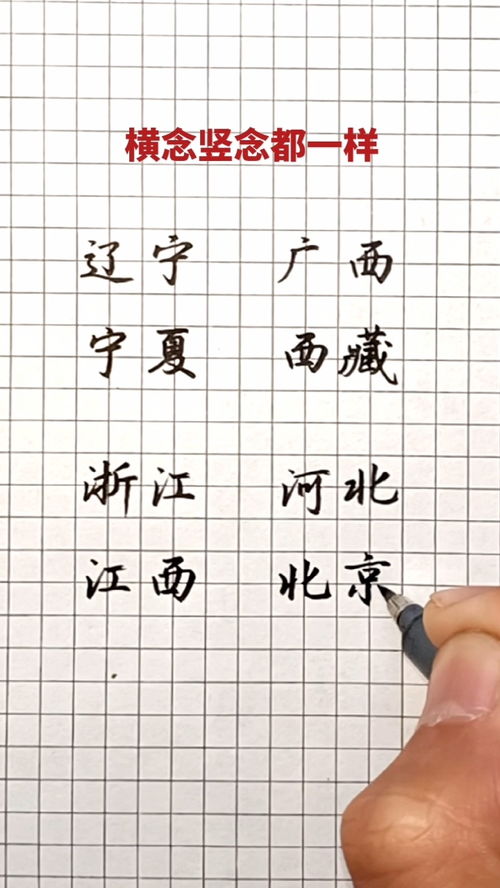 横念竖念都一样
辽宁 广西
宁夏 西藏
浙江 河北
江西 北京